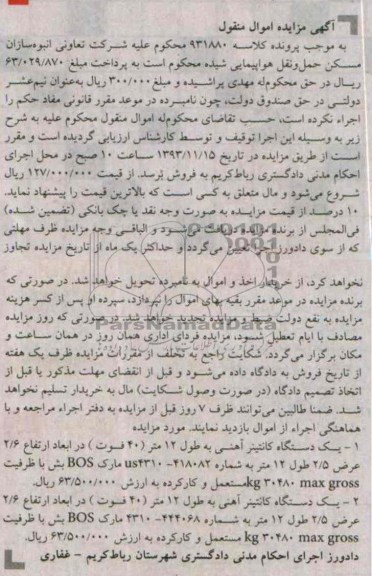 آگهی مزایده اموال منقول
به موجب پرونده کلاسه ۹۳۱۸۸۰ محکوم علیه شرکت تعاونی انبوه‌سازان
مسکن حمل‌ونقل هواپیمایی شیده محکوم است به پرداخت مبلغ ۶۳/۰۲۹/۸۷۰
ریال در حق محکوم‌له مهدی پراشیده و مبلغ ۳۰۰/۰۰۰ ریال به‌عنوان نیم‌عشر
دولتی در حق صندوق دولت، چون نامبرده در موعد مقرر قانونی مفاد حکم را
اجراء نکرده است، حسب تقاضای محکوم‌له اموال منقول محکوم علیه به شرح
زیر به وسیله این اجرا توقیف و توسط کارشناس ارزیابی گردیده است و مقرر
است از طریق مزایده در تاریخ ۱۳۹۳/۱۱/۱۵ ساعت ۱۰ صبح در محل اجرای
احکام مدنی دادگستری رباط‌کریم به فروش برسد. از قیمت ۱۲۷/۰۰۰/۰۰۰ ریال
شروع می‌شود و مال متعلق به کسی است که بالاترین قیمت را پیشنهاد نماید.
۱۰ درصد از قیمت مزایده به صورت وجه نقد یا چک بانکی (تضمین شده)
فی‌المجلس از برنده مزایده دریافت می‌شود و الباقی وجه مزایده ظرف مهلتی
که از سوی دادورز اجرا تعیین می‌گردد و حداکثر یک ماه از تاریخ مزایده تجاوز
نخواهد کرد، از خریدار اخذ و اموال به نامبرده تحویل خواهد شد. در صورتی که
برنده مزایده در موعد مقرر بقیه بهای اموال را نپردازد، سپرده او پس از کسر هزینه
مزایده به نفع دولت ضبط و مزایده تجدید خواهد شد. در صورتی که روز مزایده
مصادف با ایام تعطیل شود، مزایده فردای اداری همان روز در همان ساعت و
مکان برگزار می‌گردد. شکایت راجع به تخلف از مقررات مزایده ظرف یک هفته
از تاریخ فروش به دادگاه داده می‌شود و قبل از انقضای مهلت مذکور یا قبل از
اتخاذ تصمیم دادگاه (در صورت وصول شکایت) مال به خریدار تسلیم نخواهد
شد. ضمنا طالبین می‌توانند ظرف ۷ روز قبل از مزایده به دفتر اجراء مراجعه و با
هماهنگی اجراء از اموال بازدید نمایند. مورد مزایده
۱ – یک دستگاه کانتینر آهنی به طول ۱۲ متر (۴۰ فوت) در ابعاد ارتفاع ۲/۶
عرض ۲/۵ طول ۱۲ متر به شماره us۴۳۱۰-۴۱۸۰۸۲ مارک BOS بش با ظرفیت
kg ۳۰۴۸۰ max gross مستعمل و کارکرده به ارزش ۶۳/۵۰۰/۰۰۰ ریال.
۲ – یک دستگاه کانتینر آهنی به طول ۱۲ متر (۴۰ فوت) در ابعاد ارتفاع ۲/۶
عرض ۲/۵ طول ۱۲ متر به شماره ۴۴۴۰۶۸-۴۳۱۰ مارک BOS بش با ظرفیت
kg ۳۰۴۸۰ max gross مستعمل و کارکرده به ارزش ۶۳/۵۰۰/۰۰۰ ریال.
دادورز اجرای احکام مدنی دادگستری شهرستان رباط‌کریم – غفاری
ParsNamadData